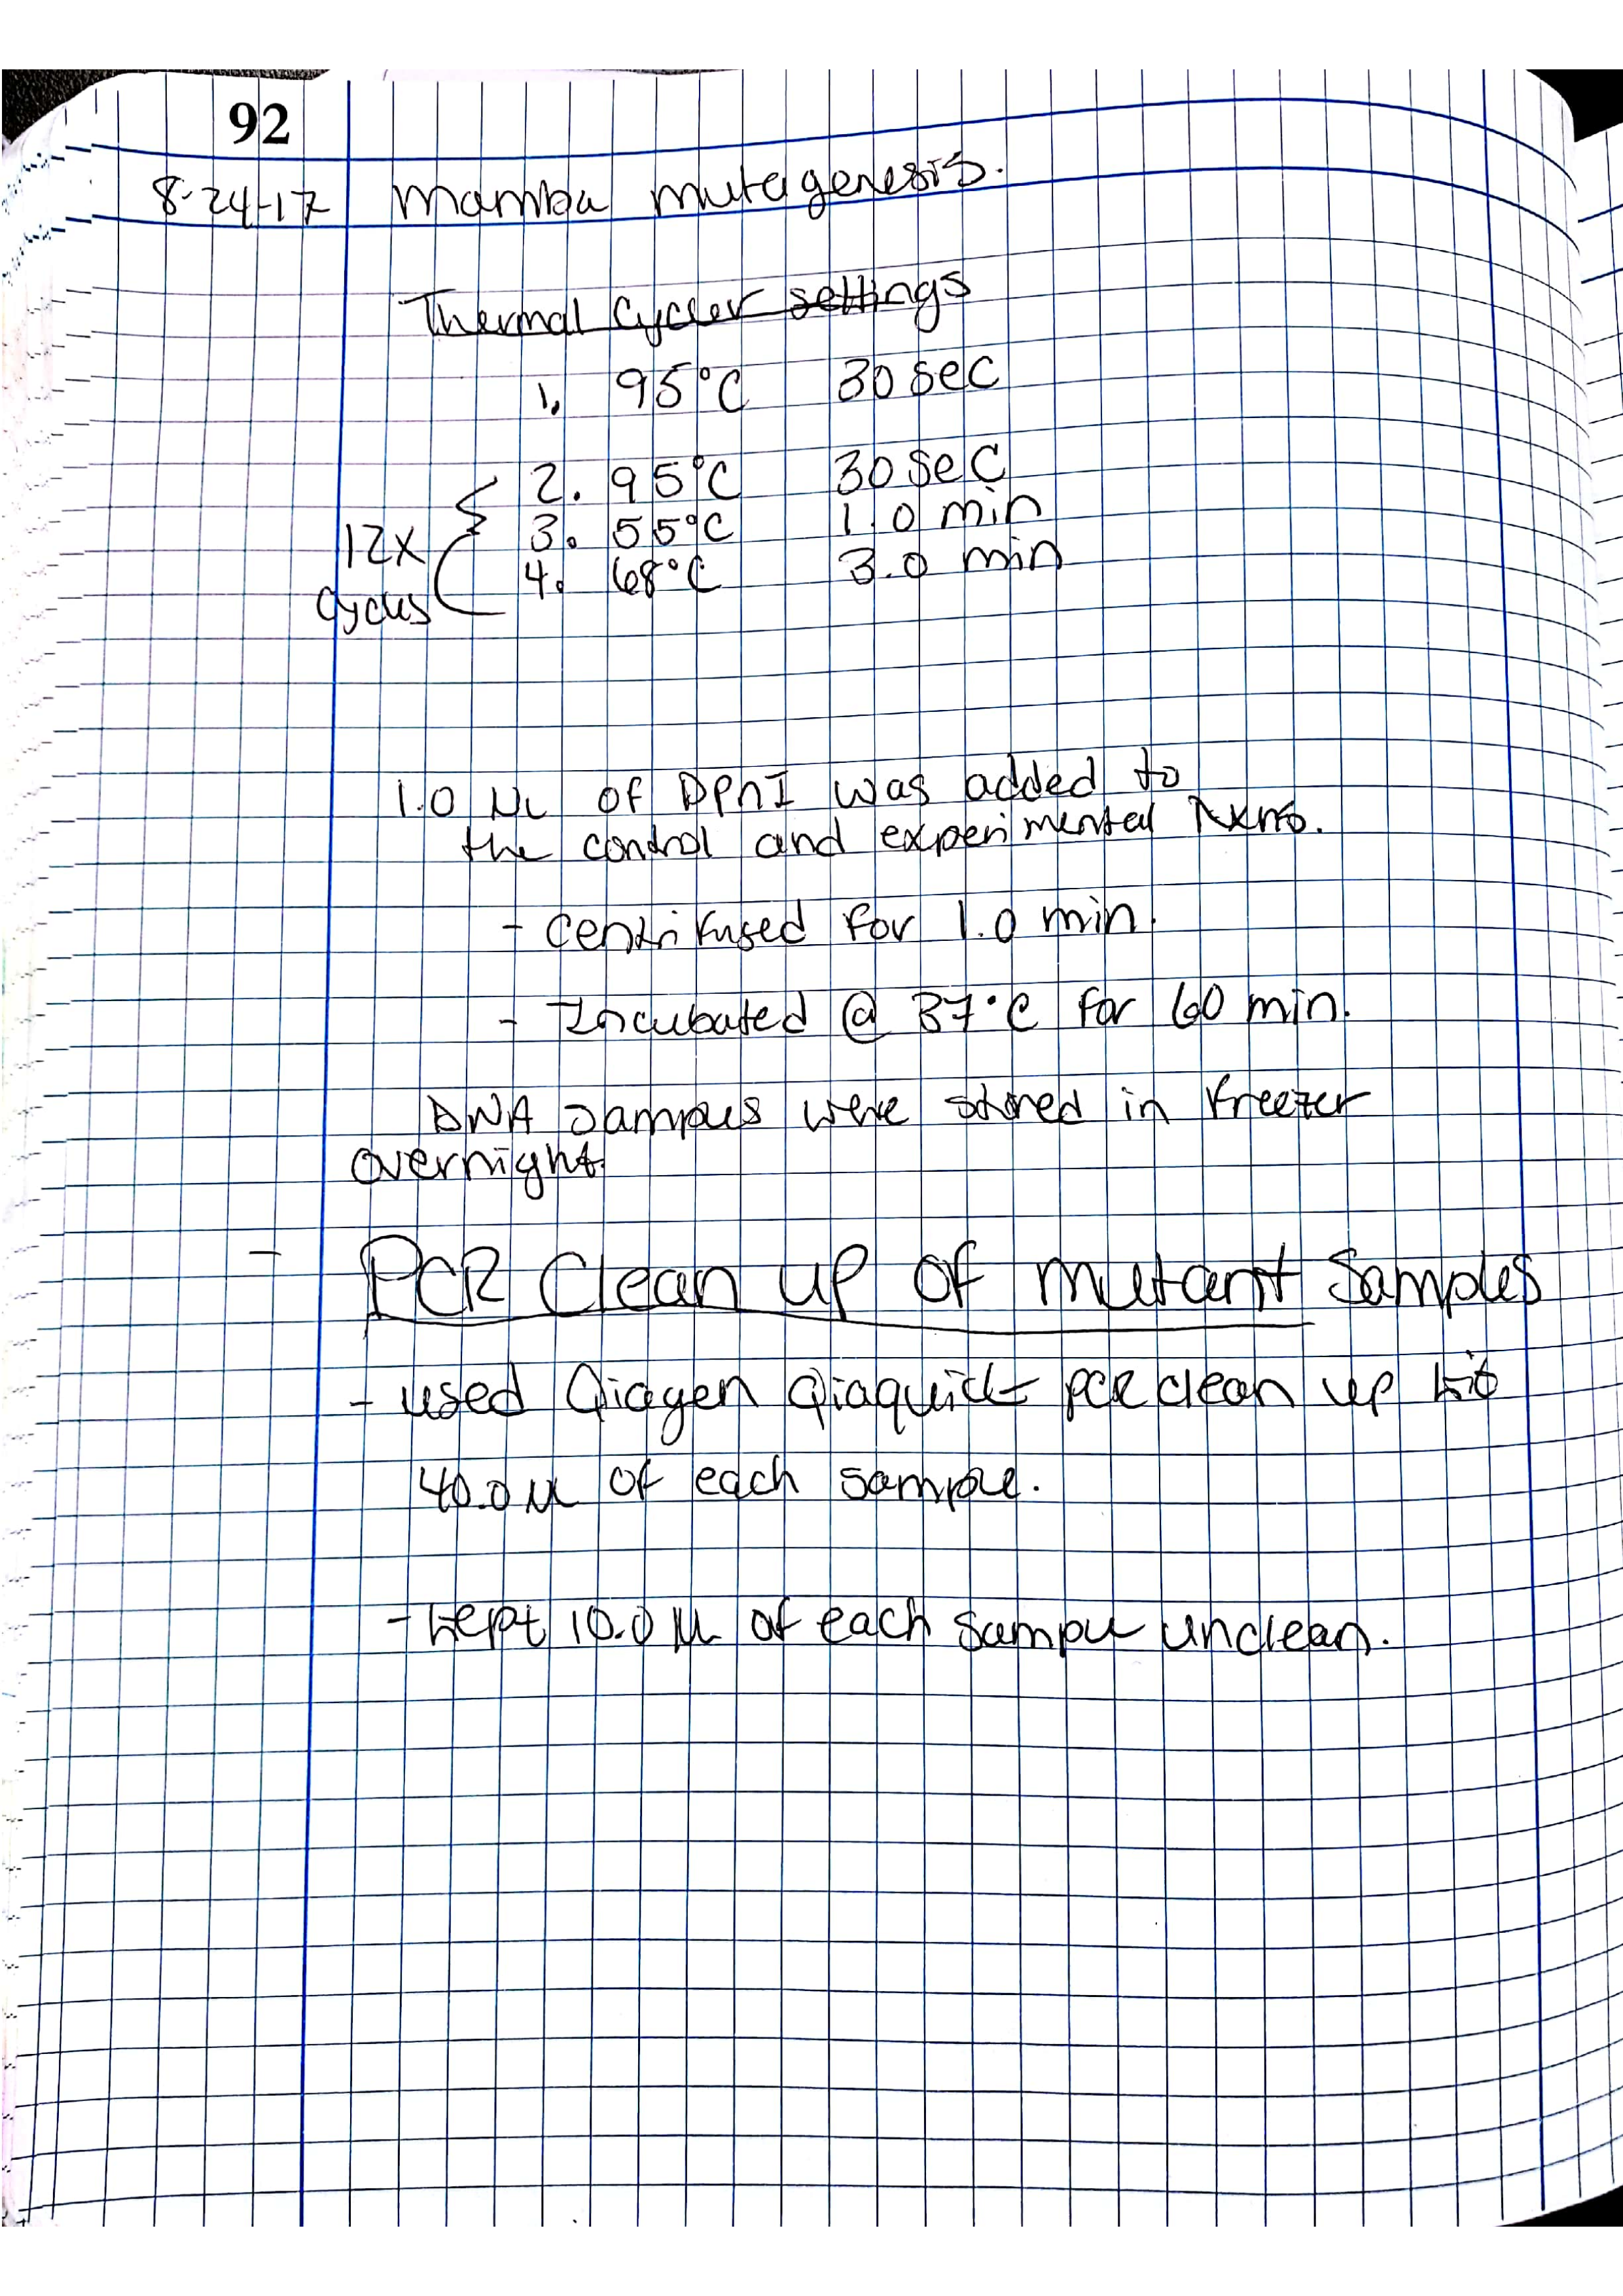 92
8-24-17 Mamba mutagenesis.
Thermal Cycler settings
1. 95°C 30 sec
2. 95°C 30 sec
3. 55°C 1.0 min
12x
4. 68°C 3.0 min
cycles
1.0 µL of DPnI was added to
the control and experimental rxns.
- Centrifuged for 1.0 min.
- Incubated @ 37°C for 60 min.
DNA samples were stored in freezer
overnight.
- PCR Clean up of mutant samples
- used Qiagen Qiaquick pcr clean up kit
40.0 µL of each sample.
- kept 10.0 µL of each sample unclean.